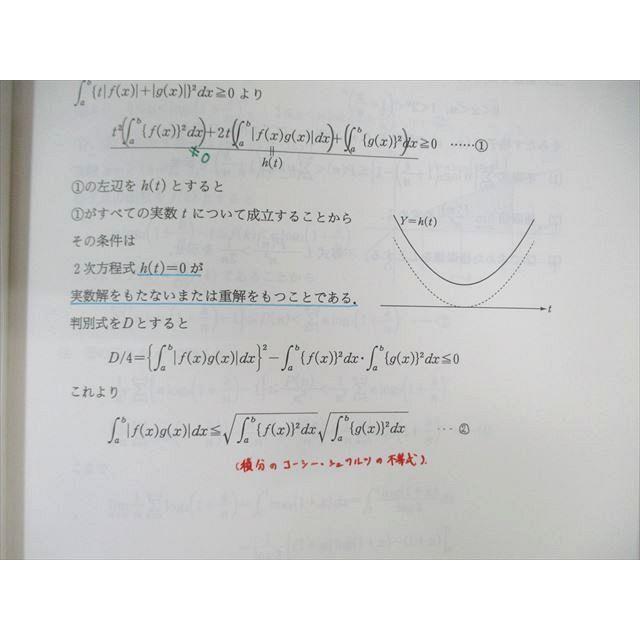 ∫_a^b {t|f(x)|+|g(x)|}²dx≧0 より
t²(∫_a^b {f(x)}²dx)+2t(∫_a^b |f(x)g(x)|dx)+(∫_a^b {g(x)}²)dx≧0 ……①
≠0
‖
h(t)
①の左辺を h(t) とすると
①がすべての実数 t について成立することから
その条件は
2次方程式 h(t)=0 が
実数解をもたないまたは重解をもつことである．
Y=h(t)
t
判別式を D とすると
D/4={∫_a^b |f(x)g(x)|dx}²−∫_a^b {f(x)}²dx・∫_a^b {g(x)}²dx≦0
これより
∫_a^b |f(x)g(x)|dx≦√∫_a^b {f(x)}²dx √∫_a^b {g(x)}²dx …②
(積分のコーシー・シュワルツの不等式).